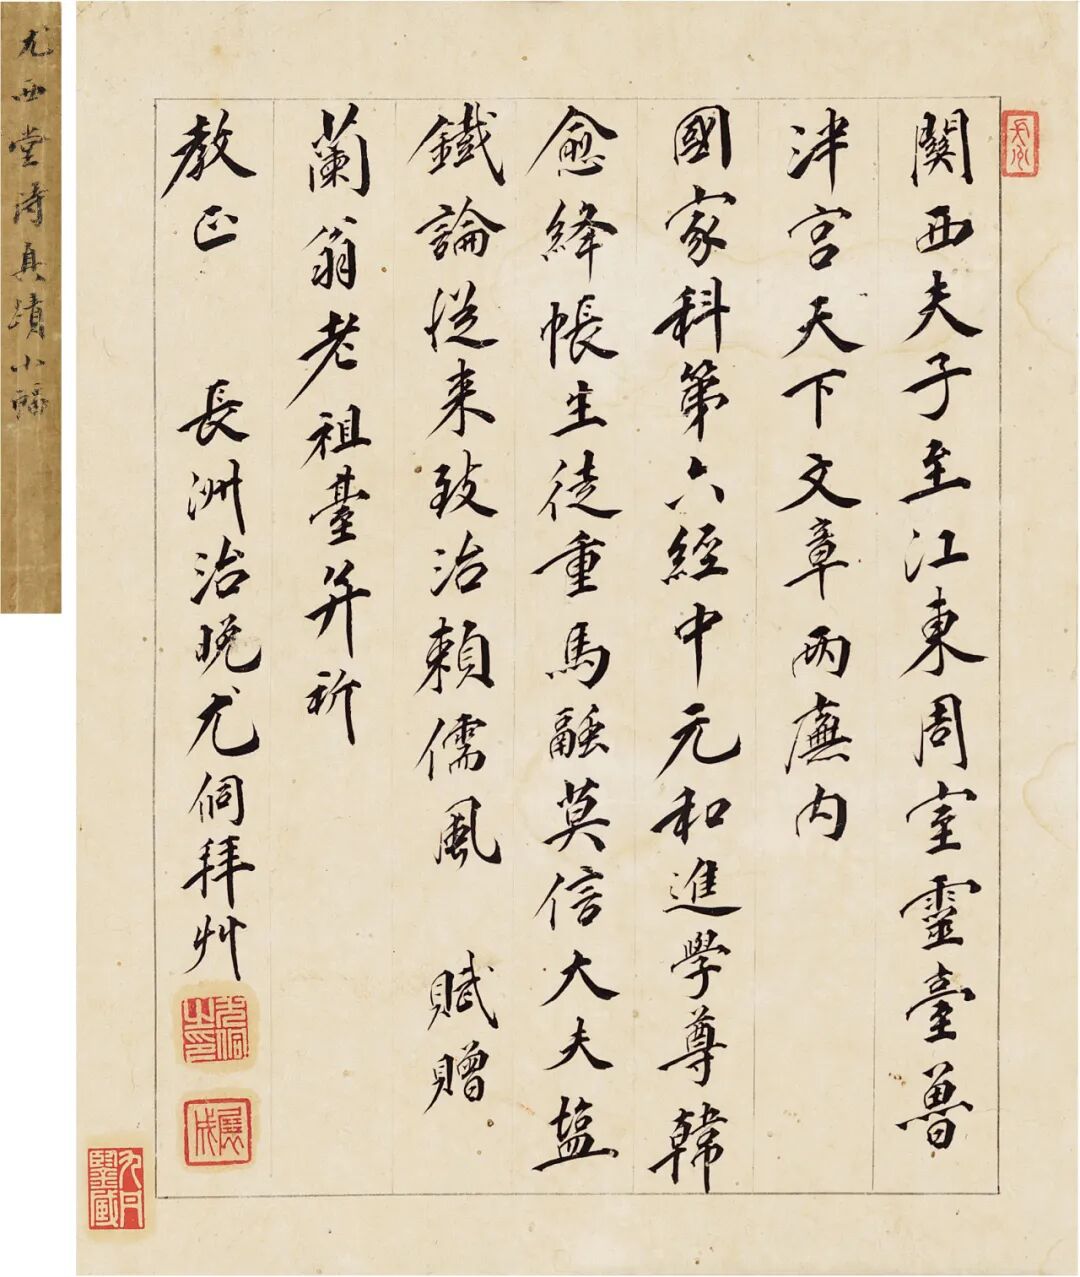 關西夫子至江東周室靈臺魯
泮宮天下文章兩廡内
國家科第六經中元和進學尊韓
愈絳帳生徒重馬融莫信大夫塩
鐵論從来致治賴儒風 賦贈
蘭翁老祖臺并祈
教正 長洲治晚尤侗拜艸
尤侗之印
展成
鑒藏
尤西堂詩真蹟小幅